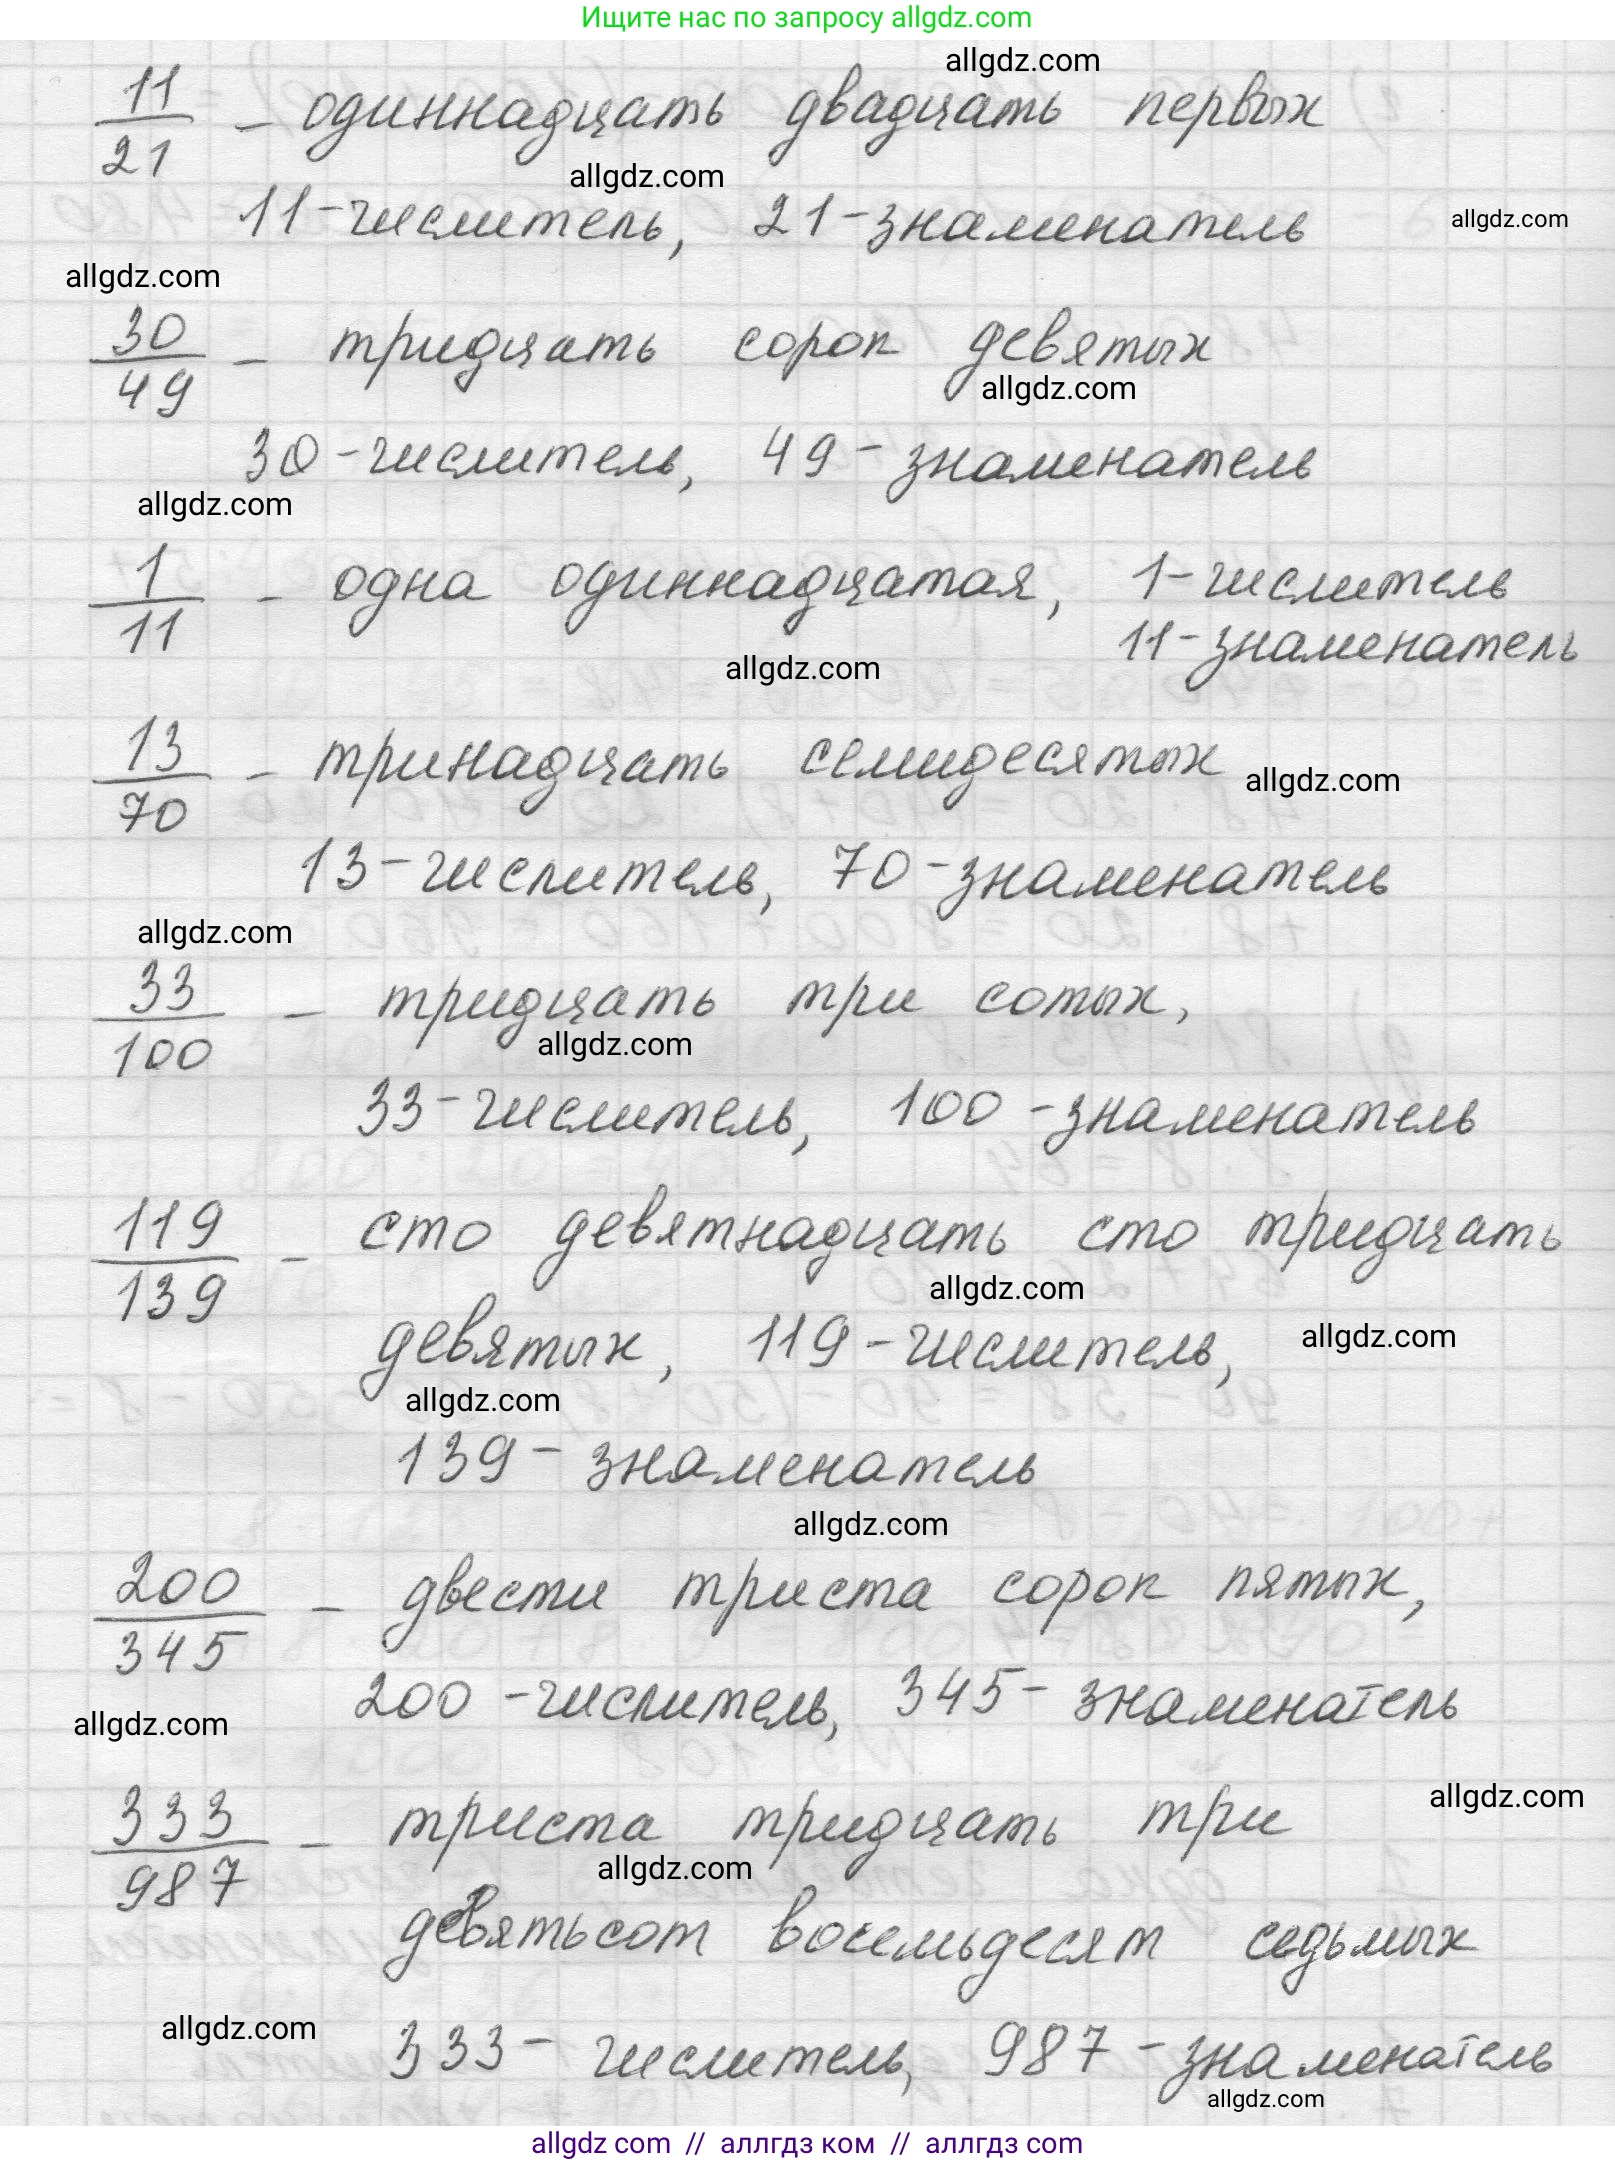 Ищите нас по запросу allgdz.com
allgdz.com
11/21 – одиннадцать двадцать первых
allgdz.com
11-числитель, 21-знаменатель
allgdz.com
allgdz.com
30/49 – тридцать сорок девятых
allgdz.com
30-числитель, 49-знаменатель
allgdz.com
1/11 – одна одиннадцатая, 1-числитель
11-знаменатель
allgdz.com
13/70 – тринадцать семидесятых
allgdz.com
13-числитель, 70-знаменатель
allgdz.com
33/100 – тридцать три сотых,
allgdz.com
33-числитель, 100-знаменатель
119/139 – сто девятнадцать сто тридцать
allgdz.com
девятых, 119-числитель,
allgdz.com
allgdz.com
139-знаменатель
allgdz.com
200/345 – двести триста сорок пятых,
200-числитель, 345-знаменатель
allgdz.com
333/987 – триста тридцать три
allgdz.com
allgdz.com
девятьсот восемьдесят седьмых
allgdz.com
333-числитель, 987-знаменатель
allgdz.com
allgdz com // аллгдз ком // аллгдз com